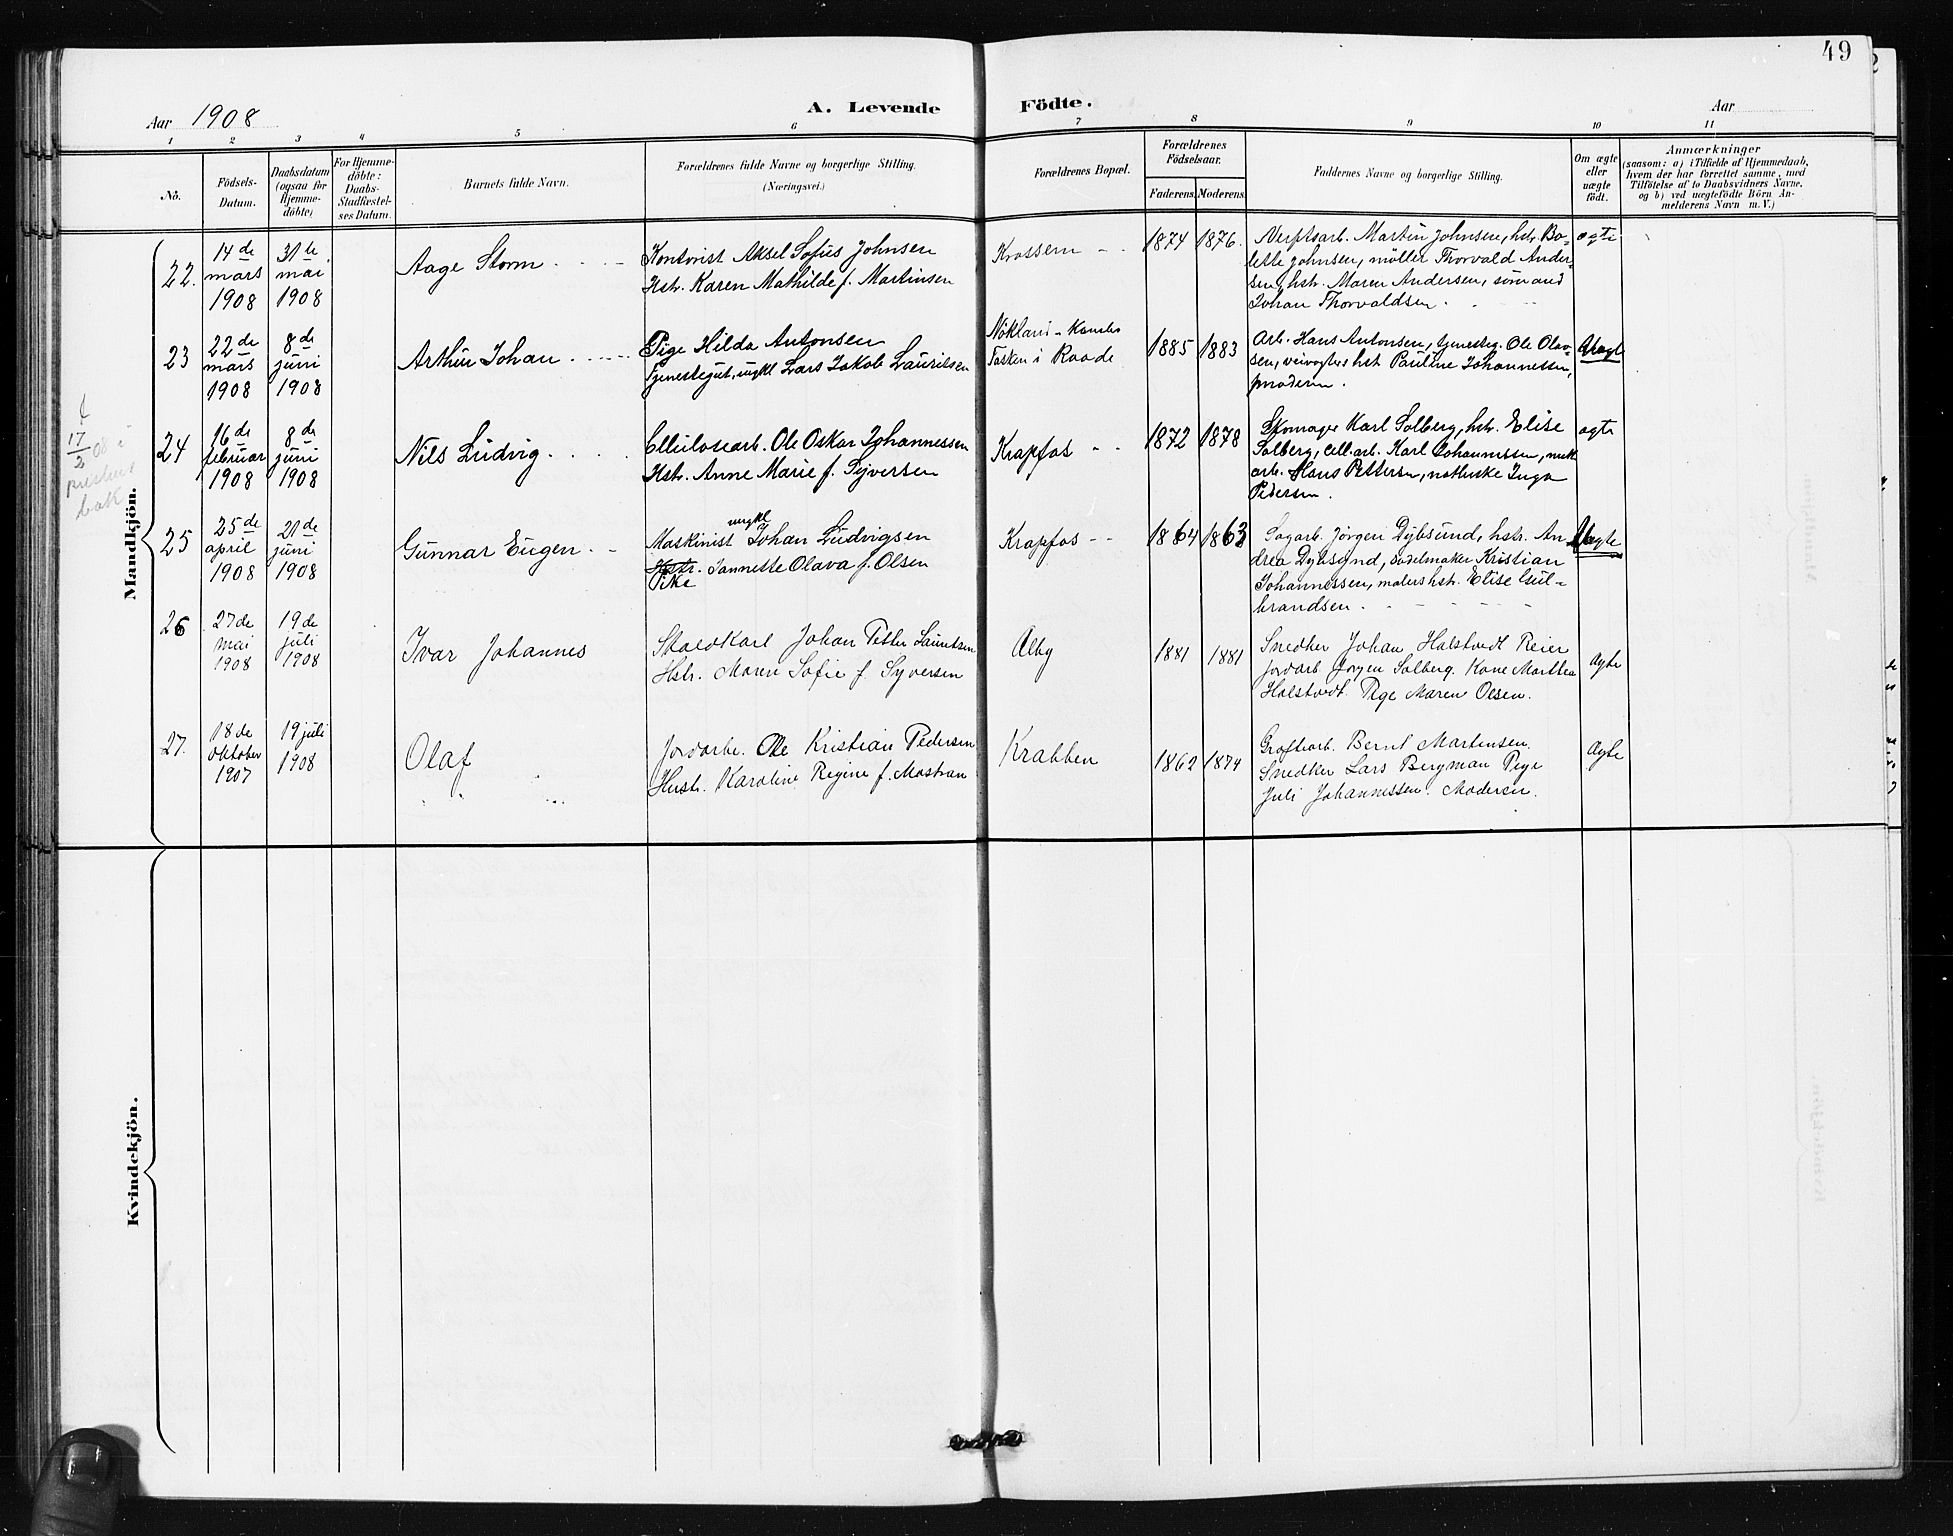 49
Aar 1908
A. Levende Födte.
Aar
1 2 3 4 5 6 7 8 9 10 11
No.
Födsels-
Datum.
Daabsdatum
(ogsaa for
Hjemme-
döbte)
For Hjemme-
döbte:
Daabs-
Stadfæstel-
ses Datum.
Barnets fulde Navn.
Forældrenes fulde Navne og borgerlige Stilling.
(Næringsvei.)
Forældrenes Bopæl.
Forældrenes
Födselsaar.
Faderens. Moderens.
Faddernes Navne og borgerlige Stilling.
Om ægte
eller
uægte
födt.
Anmærkninger
(saasom: a) i Tilfælde af Hjemmedaab,
hvem der har forrettet samme, med
Tilföielse af to Daabsvidners Navne,
og b) ved uægtefödte Börn An-
melderens Navn m. V.)
Mandkjön.
22.
14de
mars
1908
31te
mai
1908
Aage Storm
Kontorist Aksel Sofus Johnsen
Hstr. Karen Mathilde f. Martinsen
Krossern
1874 1876.
Verftsarb. Martin Johnsen, hstr. Bo-
lette Johnsen, møller Thorvald Ander-
sen, hstr. Maren Andersen, sømand
Johan Thorvaldsen.
ægte
23
22de
mars
1908
8de
juni
1908
Arthur Johan
Pige Hilda Antonsen
Tjenestegut, ugkl Lars Jakob Lauritsen
i Raade
1885 1883
Arb. Hans Antonsen, tjenesteg. Ole Olav-
sen, veivogters hst Pauline Johannessen,
moderen.
Uægte
17/2 08 i
prestens
bok
24
16de
februar
1908
8de
juni
1908
Nils Ludvig
Cellulosearb. Ole Oskar Johannessen
Hstr. Anne Marie f. Syversen
Krapfos
1872 1878
Skomager Karl Solberg, hstr. Elise
Solberg, cell.arb. Karl Johannessen,
arb. Hans Pettersen, Inga
Pedersen.
ægte
25
25de
april
1908
21de
juni
1908
Gunnar Eugen
ungkl
Maskinist Johan Ludvigsen
Hstr. Jannette Olava f. Olsen
Pike
Krapfos
1864 1863
Sagarb. Jørgen Dybsund, hstr. An-
drea Dybsund, sadelmaker Kristian
Johannessen, malers hstr. Elise Gul-
brandsen.
Uægte
26
27de
mai
1908
19de
juli
1908
Ivar Johannes
Staldkarl Johan Petter Lauritsen
Hstr. Maren Sofie f Syversen
Alby
1881 1881
Snedker Johan Halstvedt Reier
Jordarb Jørgen Solberg. Kone Marthea
Halstvedt. Pige Maren Olsen.
Ægte
27.
18de
Oktober
1907
19 juli
1908
Olaf
Jordarbe. Ole Kristian Pedersen
Hustr. Karoline Regine f. Mostran
Krabben
1862 1874
Grøftearb. Bernt Martinsen.
Snedker Lars Bergman Pige
Juli Johannessen. Moderen.
Ægte
Kvindekjön.